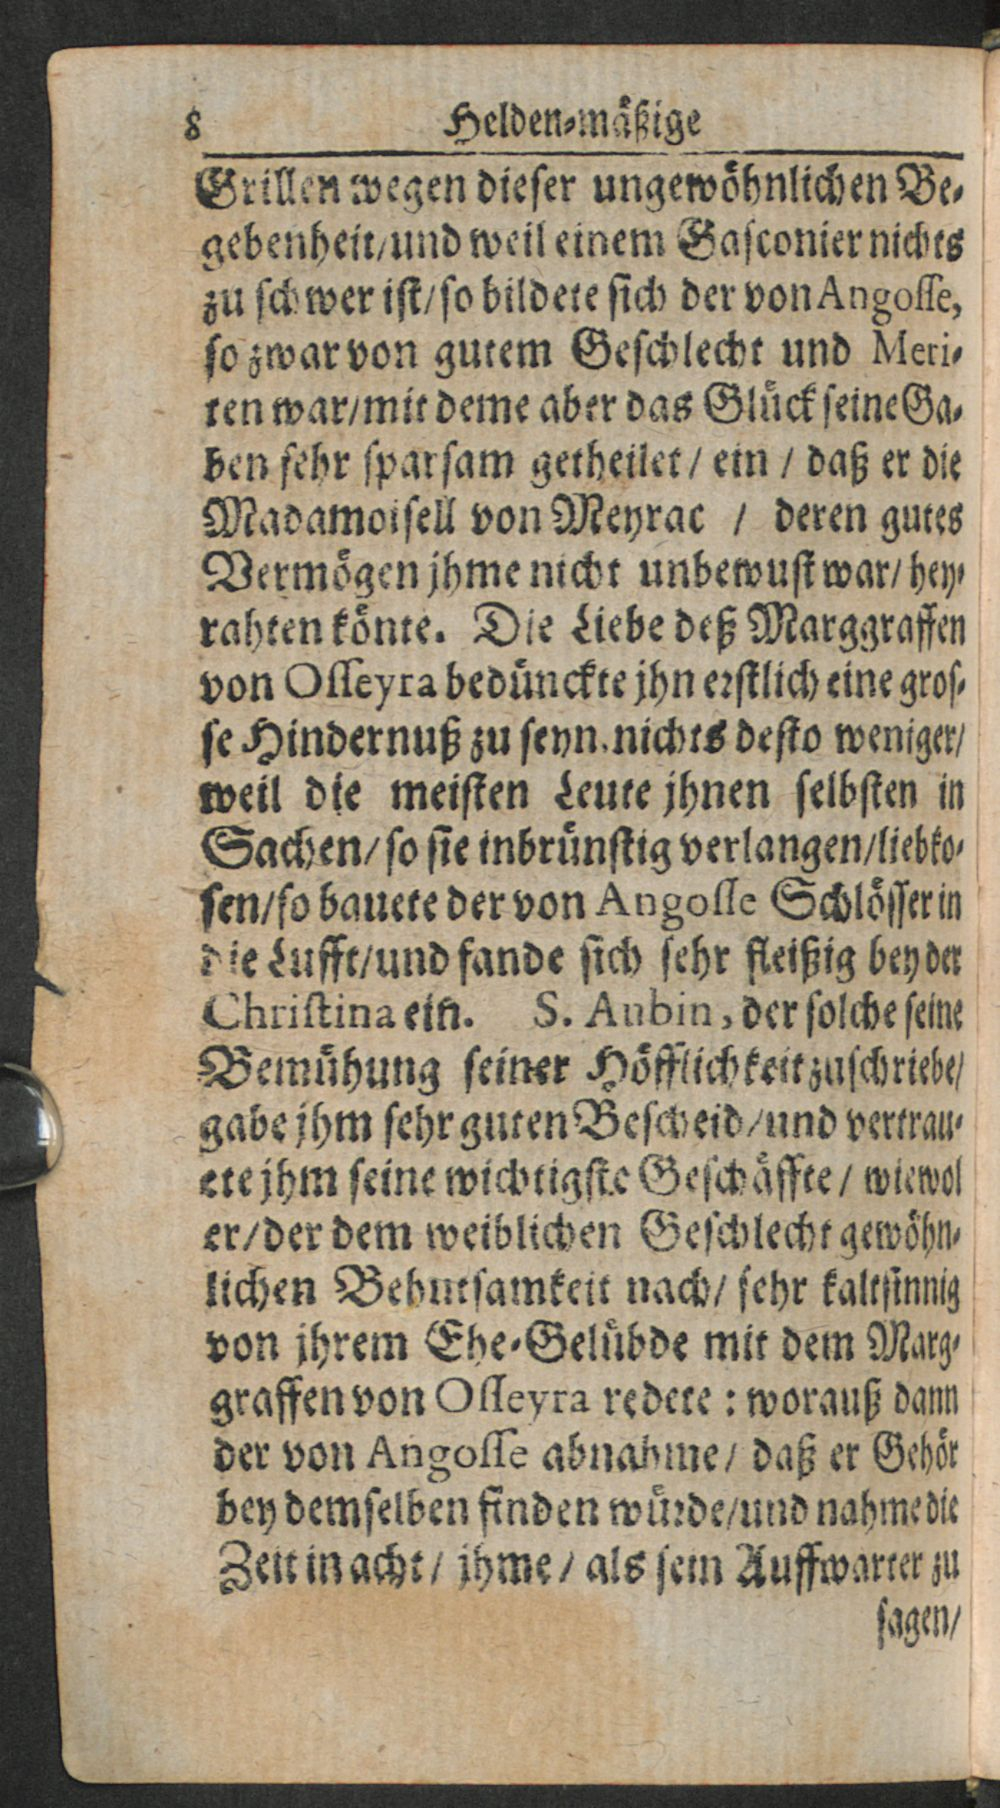 8 Helden-mäßige
Grillen wegen dieser ungewöhnlichen Be-
gebenheit/und weil einem Gasconier nichts
zu schwer ist/so bildete sich der von Angosse,
so zwar von gutem Geschlecht und Meri-
ten war/mit deme aber das Glück seine Ga-
ben sehr sparsam getheilet/ ein / daß er die
Madamoisell von Meyrac / deren gutes
Vermögen jhme nicht unbewust war/ hey-
rahten könte. Die Liebe deß Marggraffen
von Osseyra bedünckte jhn erstlich eine gros-
se Hindernuß zu seyn. nichts desto weniger/
weil die meisten Leute jhnen selbsten in
Sachen/ so sie inbrünstig verlangen/liebko-
sen/so bauete der von Angosse Schlösser in
die Lufft/und fande sich sehr fleißig bey der
Christina ein. S. Aubin, der solche seine
Bemühung seiner Höfflichkeit zuschriebe/
gabe jhm sehr guten Bescheid/und vertrau-
ete jhm seine wichtigste Geschäffte / wiewol
er/der dem weiblichen Geschlecht gewöhn-
lichen Behutsamkeit nach/ sehr kaltsinnig
von jhrem Ehe-Gelübde mit dem Marg-
graffen von Osseyra redete : worauß dann
der von Angosse abnahme/ daß er Gehör
bey demselben finden würde/und nahme die
Zeit in acht/ jhme / als sein Auffwarter zu
sagen/